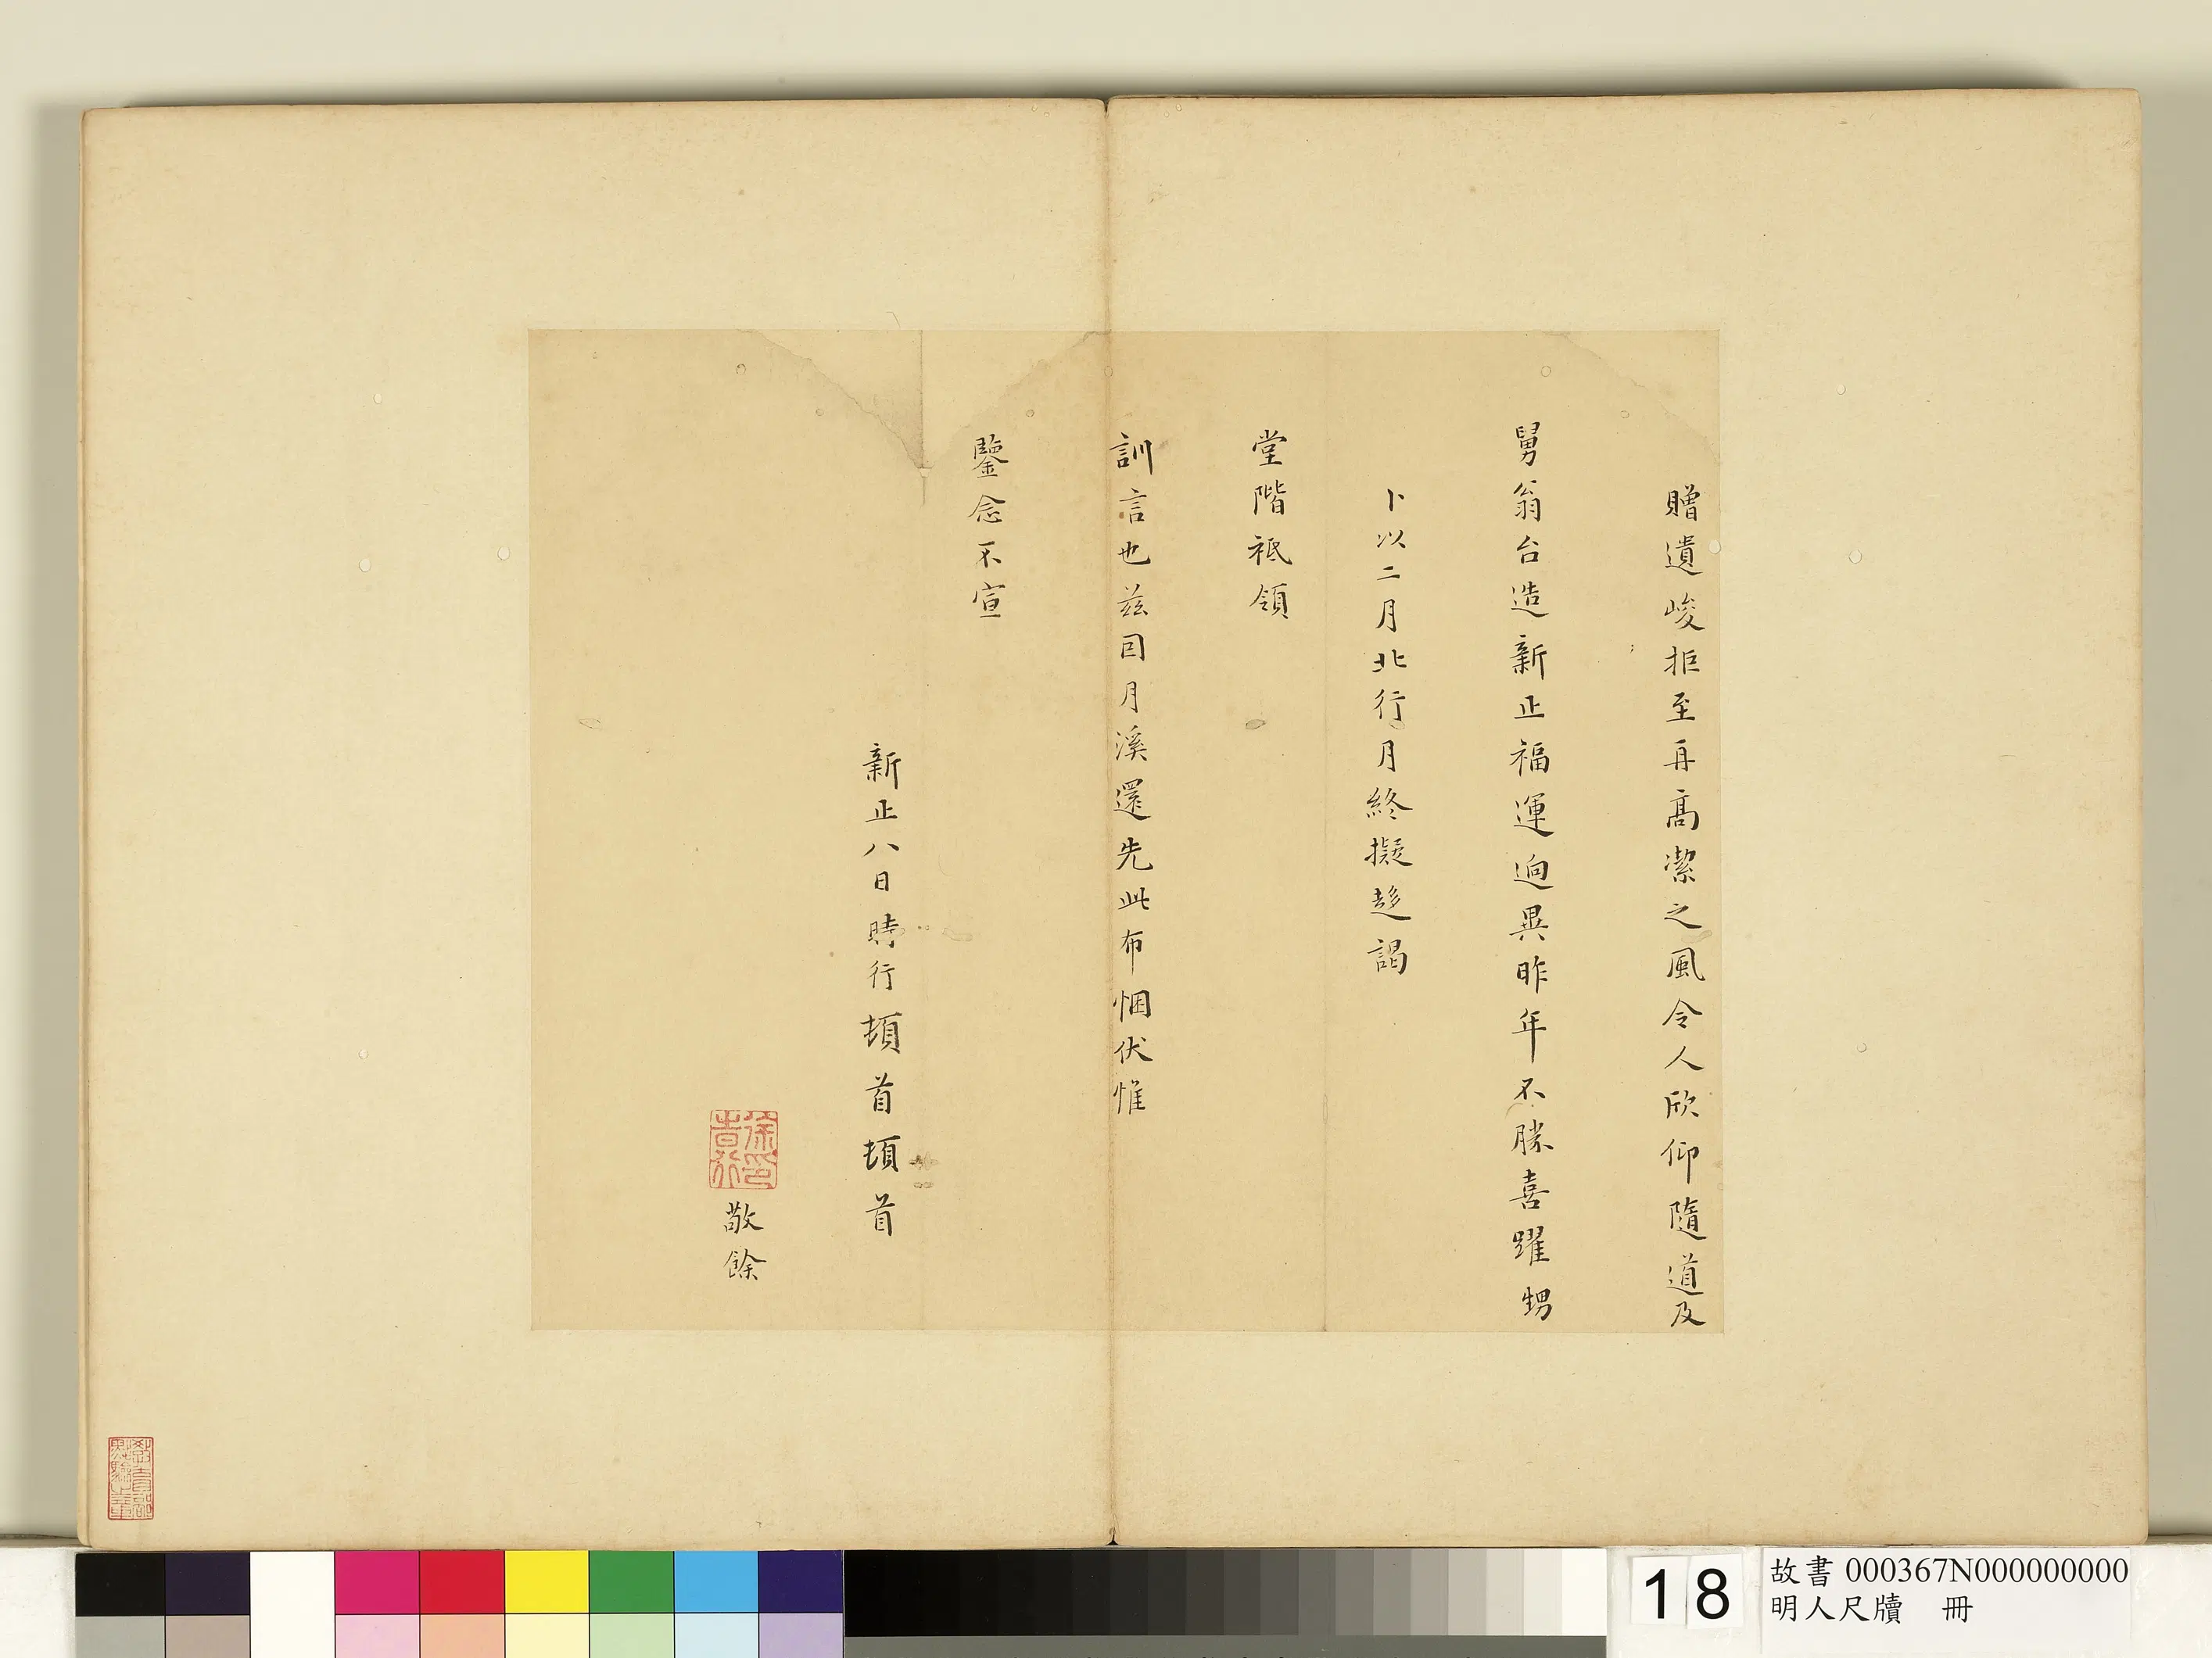 贈遺峻拒至再高潔之風令人欣仰隨道及
舅翁台造新正福運迥異昨年不勝喜躍甥
卜以二月北行月終擬趍謁
堂階祗領
訓言也茲因月溪還先此布悃伏惟
鑒念不宣
新正八日時行頓首頓首
敬餘
18
故書 000367N000000000
明人尺牘 冊